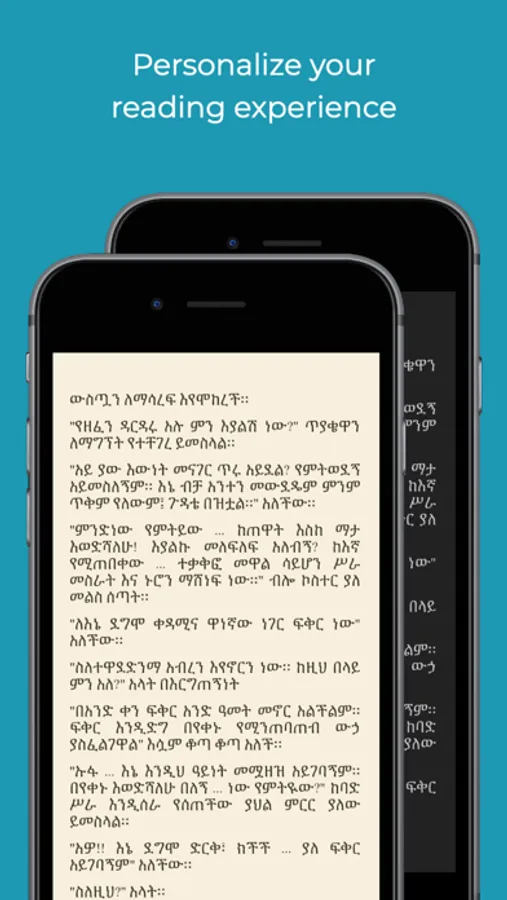 Personalize your
reading experience
ውስጧን ለማሳረፍ እየሞከረች።
"የዘፈን ዳርዳሩ አሉ ምን እያልሽ ነው?" ጥያቄዋን
ለማግኘት የተቸገረ ይመስላል።
"አይ ያው እውነት መናገር ጥሩ አይደል? የምትወደኝ
አይመስለኝም። እኔ ብቻ አንተን መውደዴም ምንም
ጥቅም የለውም፤ ጉዳቴ በዝቷል።" አለችው።
"ምንድነው የምትይው ... ከጠዋት እስከ ማታ
እወድሻለሁ! እያልኩ መለፍለፍ አለብኝ? ከእኛ
የሚጠበቀው ... ተቃቅፎ መዋል ሳይሆን ሥራ
መስራት እና ኑሮን ማሸነፍ ነው።" ብሎ ኮስተር ያለ
መልስ ሰጣት።
"ለእኔ ደግሞ ቀዳሚና ዋነኛው ነገር ፍቅር ነው"
አለችው።
"ስለተዋደድንማ አብረን እየኖርን ነው። ከዚህ በላይ
ምን አለ?" አላት በእርግጠኝነት
"በአንድ ቀን ፍቅር አንድ ዓመት መኖር አልችልም።
ፍቅር እንዲድግ በየቀኑ የሚንጠባጠብ ውኃ
ያስፈልገዋል" እሷም ቆጣ ቆጣ አለች።
"ኡፋ ... እኔ እንዲህ ዓይነት መሟዘዝ አይገባኝም።
በየቀኑ እወድሻለሁ በለኝ ... ነው የምትዪው?" ከባድ
ሥራ እንዲሰራ የሰጠችው ያህል ምርር ያለው
ይመስላል።
"አዎ!! እኔ ደግሞ ድርቅ፣ ከችች ... ያለ ፍቅር
አይገባኝም" አለችው።
"ስለዚህ?" አላት።
ቄዋን
ወደኝ
ምንም
ማታ
ከእኛ
ሥራ
ር ያለ
ነው"
በላይ
ልም።
ውኃ
ኝም።
ከባድ
ያለው
ፍቅር